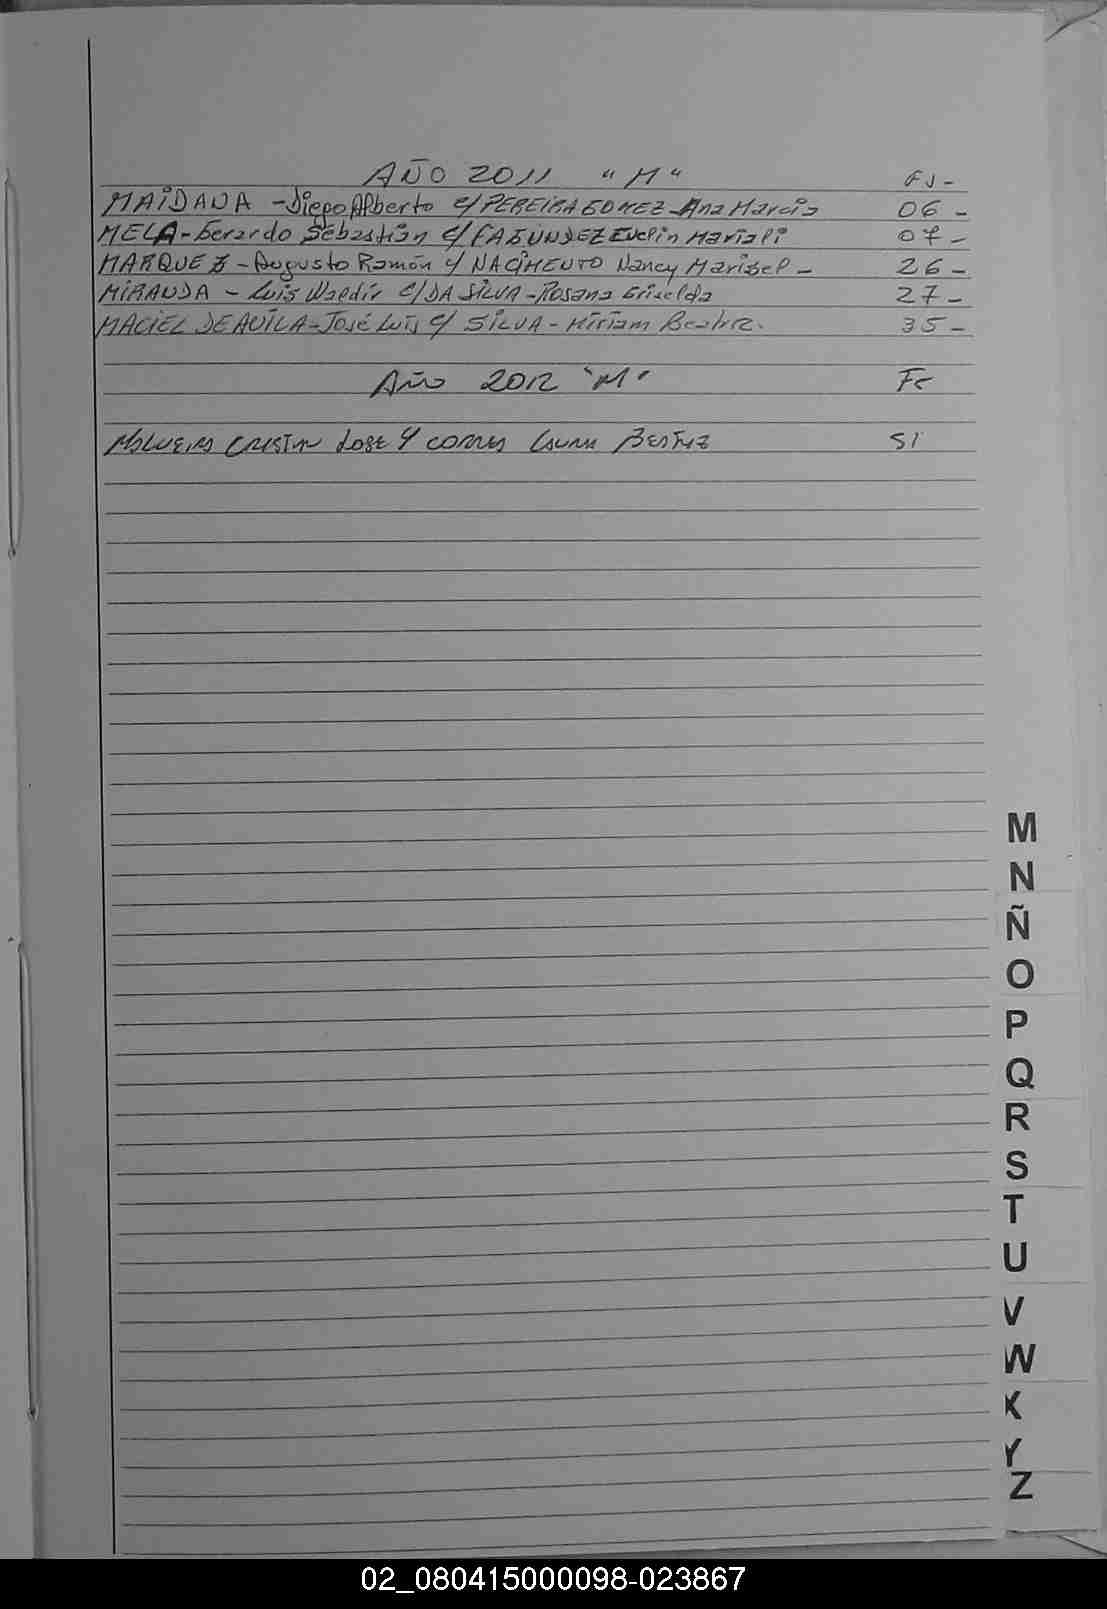 AÑO 2011 "M" FJ-
MAIDANA - Diego Alberto c/ PEREIRA GOMEZ - Ana Marcia 06 -
MELA - Gerardo Sebastián c/ FAGUNDEZ Evelin Mariali 07 -
MARQUEZ - Augusto Ramón c/ NACIMENTO Nancy Marisel - 26 -
MIRANDA - Luis Waldir c/ DA SILVA - Rosana Griselda 27 -
MACIEL DE AVILA - José Luis c/ SILVA - Miriam Beatriz. 35 -
Año 2012 "M"
Cristian Jose c/ Laura Beatriz
M
N
Ñ
O
P
Q
R
S
T
U
V
W
X
Y
Z
02_080415000098-023867